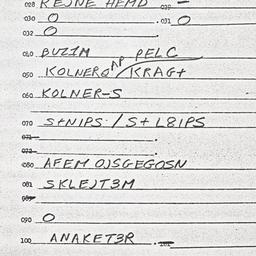 028 REJNE HEMD 029 -
030 O 031 O
032 O
040 BUZIM AP PELC
050 KOLNERQ / KRAGT
060 KOLNER-S
070 S+NIPS / S+ L8IPS
071
072
080 AFEM OJSGEGOSN
081 SKLEJT3M
090 O
100 ANAKET3R